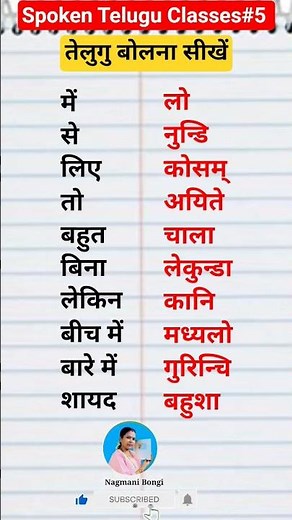 Spoken Telugu Classes#5
तेलुगु बोलना सीखें
में लो
से नुन्डि
लिए कोसम्
तो अयिते
बहुत चाला
बिना लेकुन्डा
लेकिन कानि
बीच में मध्यलो
बारे में गुरिन्चि
शायद बहुशा
Nagmani Bongi
SUBSCRIBED